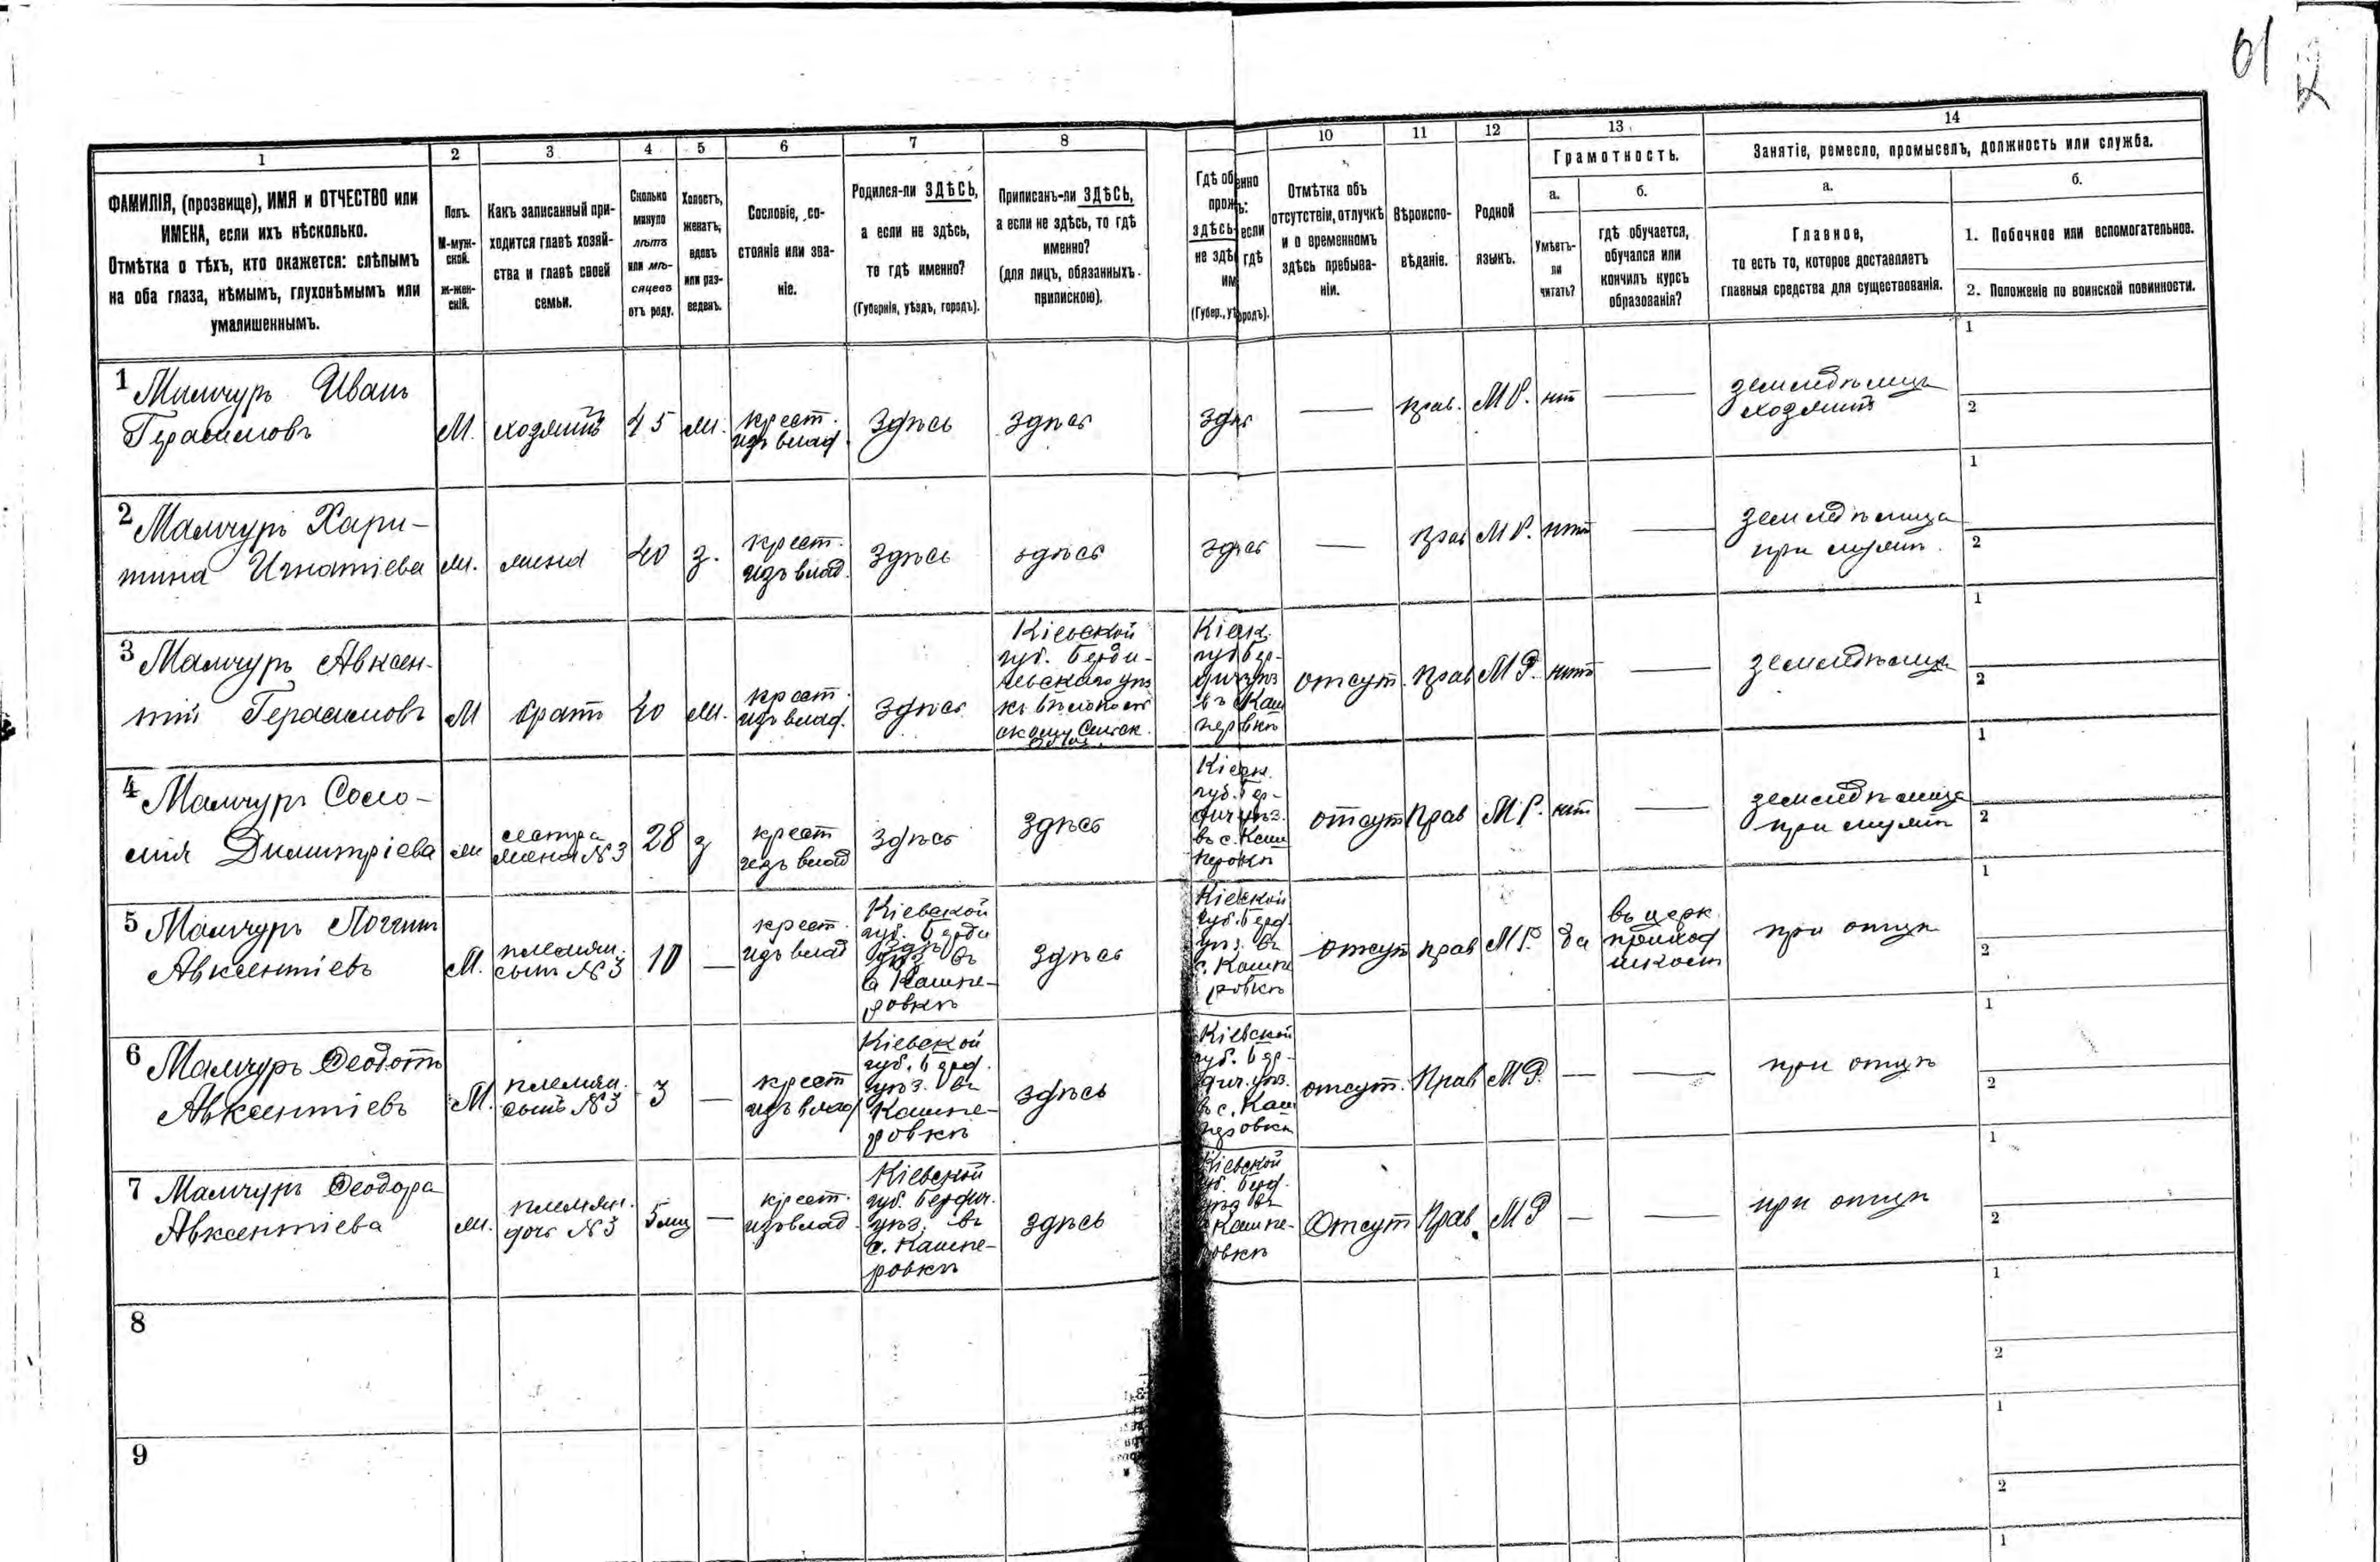 61
1
2
3
4
5
6
7
8
10
11
12
13
14
ФАМИЛІЯ, (прозвище), ИМЯ и ОТЧЕСТВО или
ИМЕНА, если ихъ нѣсколько.
Отмѣтка о тѣхъ, кто окажется: слѣпымъ
на оба глаза, нѣмымъ, глухонѣмымъ или
умалишеннымъ.
Полъ.
М-муж-
ской.
ж-жен-
скій.
Какъ записанный при-
ходится главѣ хозяй-
ства и главѣ своей
семьи.
Сколько
минуло
лѣтъ
или мѣ-
сяцевъ
отъ роду.
Холостъ,
женатъ,
вдовъ
или раз-
веденъ.
Сословіе, со-
стояніе или зва-
ніе.
Родился-ли ЗДѢСЬ,
а если не здѣсь,
то гдѣ именно?
(Губернія, уѣздъ, городъ).
Приписанъ-ли ЗДѢСЬ,
а если не здѣсь, то гдѣ
именно?
(для лицъ, обязанныхъ
припискою).
Гдѣ об нно
прож ъ:
ЗДѢСЬ если
не здѣ гдѣ
им
(Губер., у родъ).
Отмѣтка объ
отсутствіи, отлучкѣ
и о временномъ
здѣсь пребыва-
ніи.
Вѣроиспо-
вѣданіе.
Родной
языкъ.
Грамотность.
а.
Умѣетъ-
ли
читать?
б.
гдѣ обучается,
обучался или
кончилъ курсъ
образованія?
Занятіе, ремесло, промыселъ, должность или служба.
а.
Главное,
то есть то, которое доставляетъ
главныя средства для существованія.
б.
1. Побочное или вспомогательное.
2. Положеніе по воинской повинности.
1 Мамчуръ Иванъ
Герасимовъ
М. хозяинъ 45 ж. крест.
изъ влад. здѣсь здѣсь здѣсь — прав. М.Р. нѣт — земледѣлецъ
хозяинъ
1
2
2 Мамчуръ Хари-
тина Игнатіева
ж. жена 40 з. крест.
изъ влад. здѣсь здѣсь здѣсь — прав М.Р. нѣт — земледѣлица
при мужѣ.
1
2
3 Мамчуръ Авксен-
тій Герасимовъ
М братъ 40 ж. крест.
изъ влад. здѣсь
Кіевской
губ. Берди-
чевскаго уѣз
Кіевск.
губ Бер-
дич уѣз
въ с Каш
перовкѣ
отсут. прав М.Р. нѣтъ — земледѣлец
1
2
4 Мамчуръ Соло-
мія Димитріева
ж
жена № 3
28 з крест
изъ влад здѣсь здѣсь
Кіевск.
губ. Бер-
дич уѣз.
въ с. Каш
перовкѣ
отсут прав М.Р. нѣт — земледѣлица
при мужѣ
1
2
5 Мамчуръ Логгинъ
Авксентіевъ
М. племян.
сынъ № 3
10 — крест.
изъ влад
Кіевской
губ. Берди
уѣз. въ
с Кашпе-
ровкѣ
здѣсь
Кіевской
губ. Берд.
уѣз. въ
с. Кашпе
ровкѣ
отсут прав М.Р. да
въ церк
приход
школѣ
при отцѣ
1
2
6 Мамчуръ Ѳеодотъ
Авксентіевъ
М. племян.
сынъ № 3
3 — крест
изъ влад
Кіевской
губ. Берд.
уѣз. въ
Кашпе-
ровкѣ
здѣсь
Кіевской
губ. Бер-
дич. уѣз.
въ с. Каш
перовкѣ
отсут. Прав М.Р. — — при отцѣ
1
2
7 Мамчуръ Ѳеодора
Авксентіева
ж. племян.
дочь № 3
5 мц — крест.
изъ влад.
Кіевской
губ. Бердич.
уѣз. въ
с. Кашпе-
ровкѣ
здѣсь
Кіевской
губ. Берд.
уѣз въ
Кашпе-
ровкѣ
Отсут Прав. М.Р — — при отцѣ
1
2
8
1
2
9
1
2
1